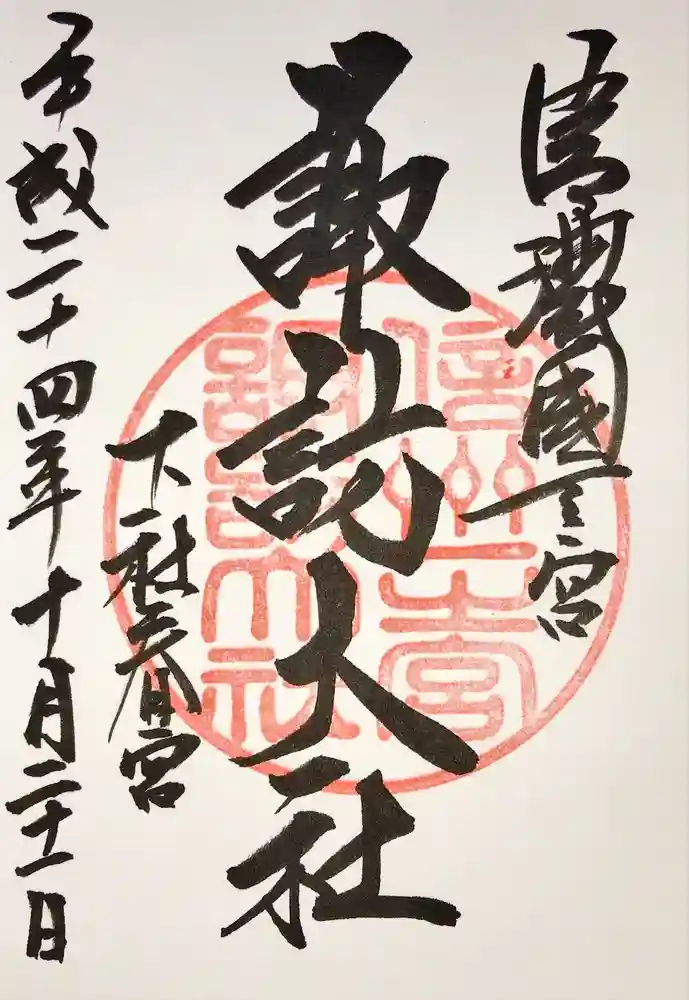 信濃國一之宮
諏訪大社
下社春宮
平成二十四年十月二十一日
信州一之宮
諏訪大社